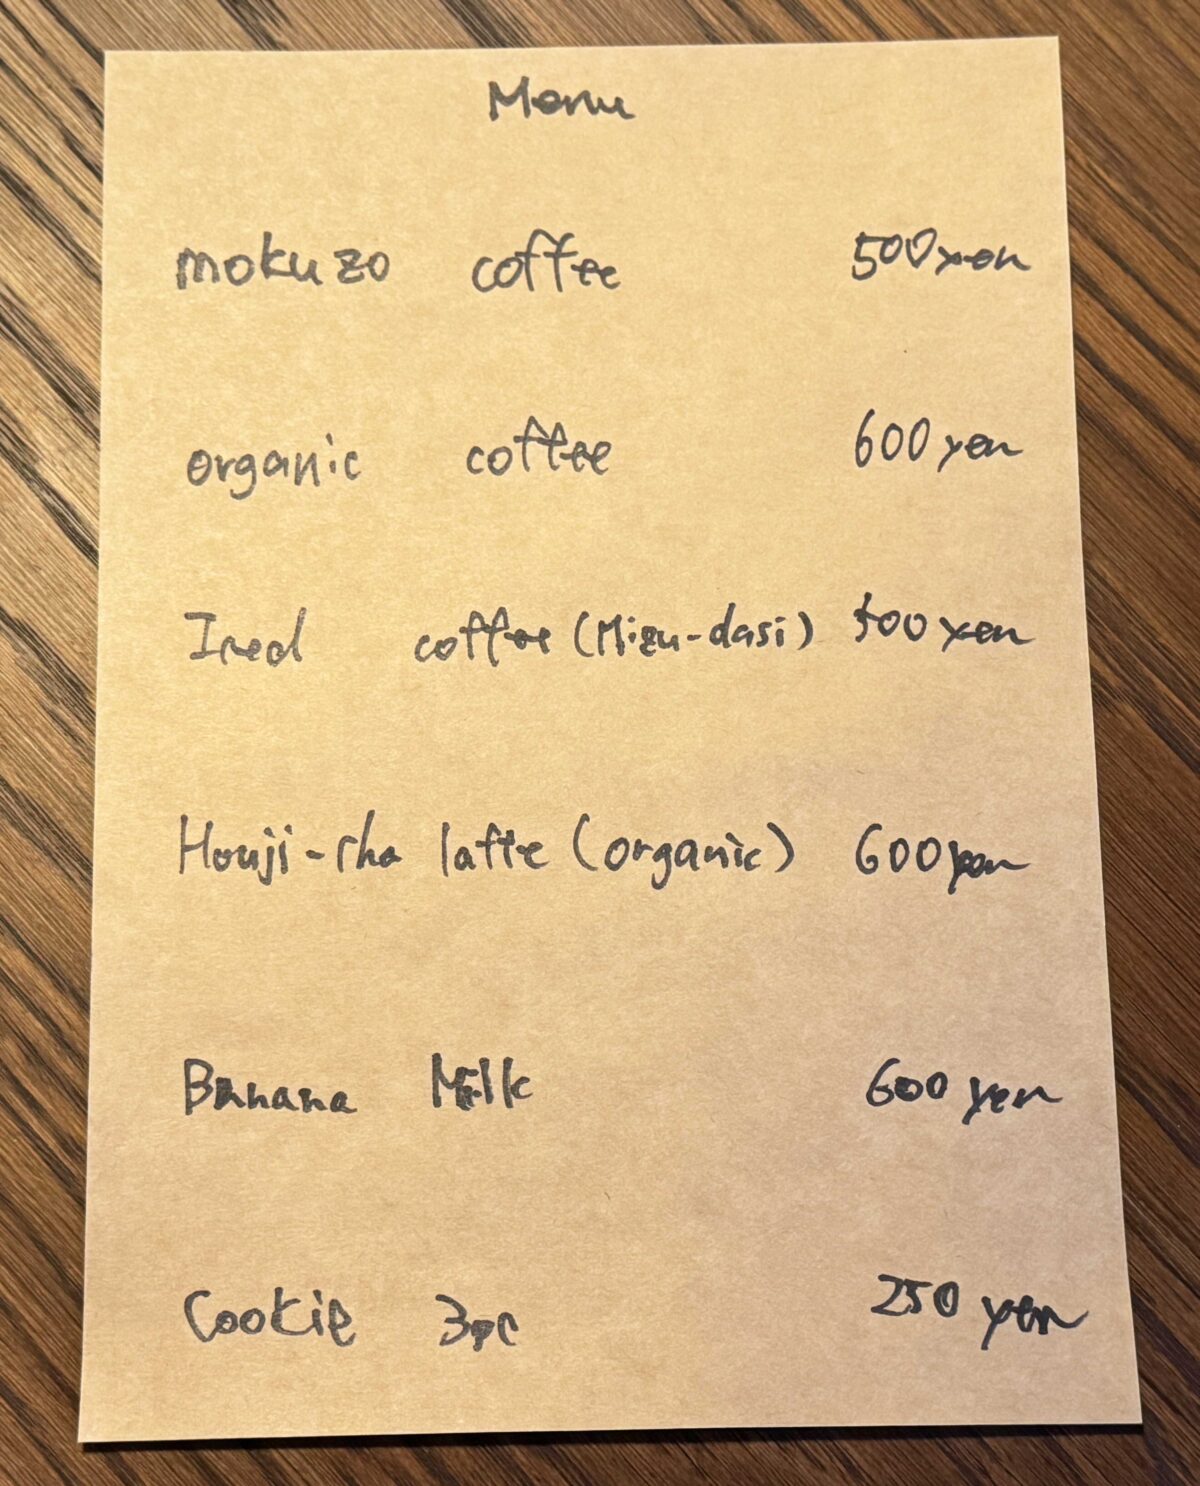 Menu
mokuzo coffee 500 yen
organic coffee 600 yen
Iced coffee (Mizu-dasi) 500 yen
Houji-cha latte (organic) 600 yen
Banana Milk 600 yen
Cookie 3pc 250 yen